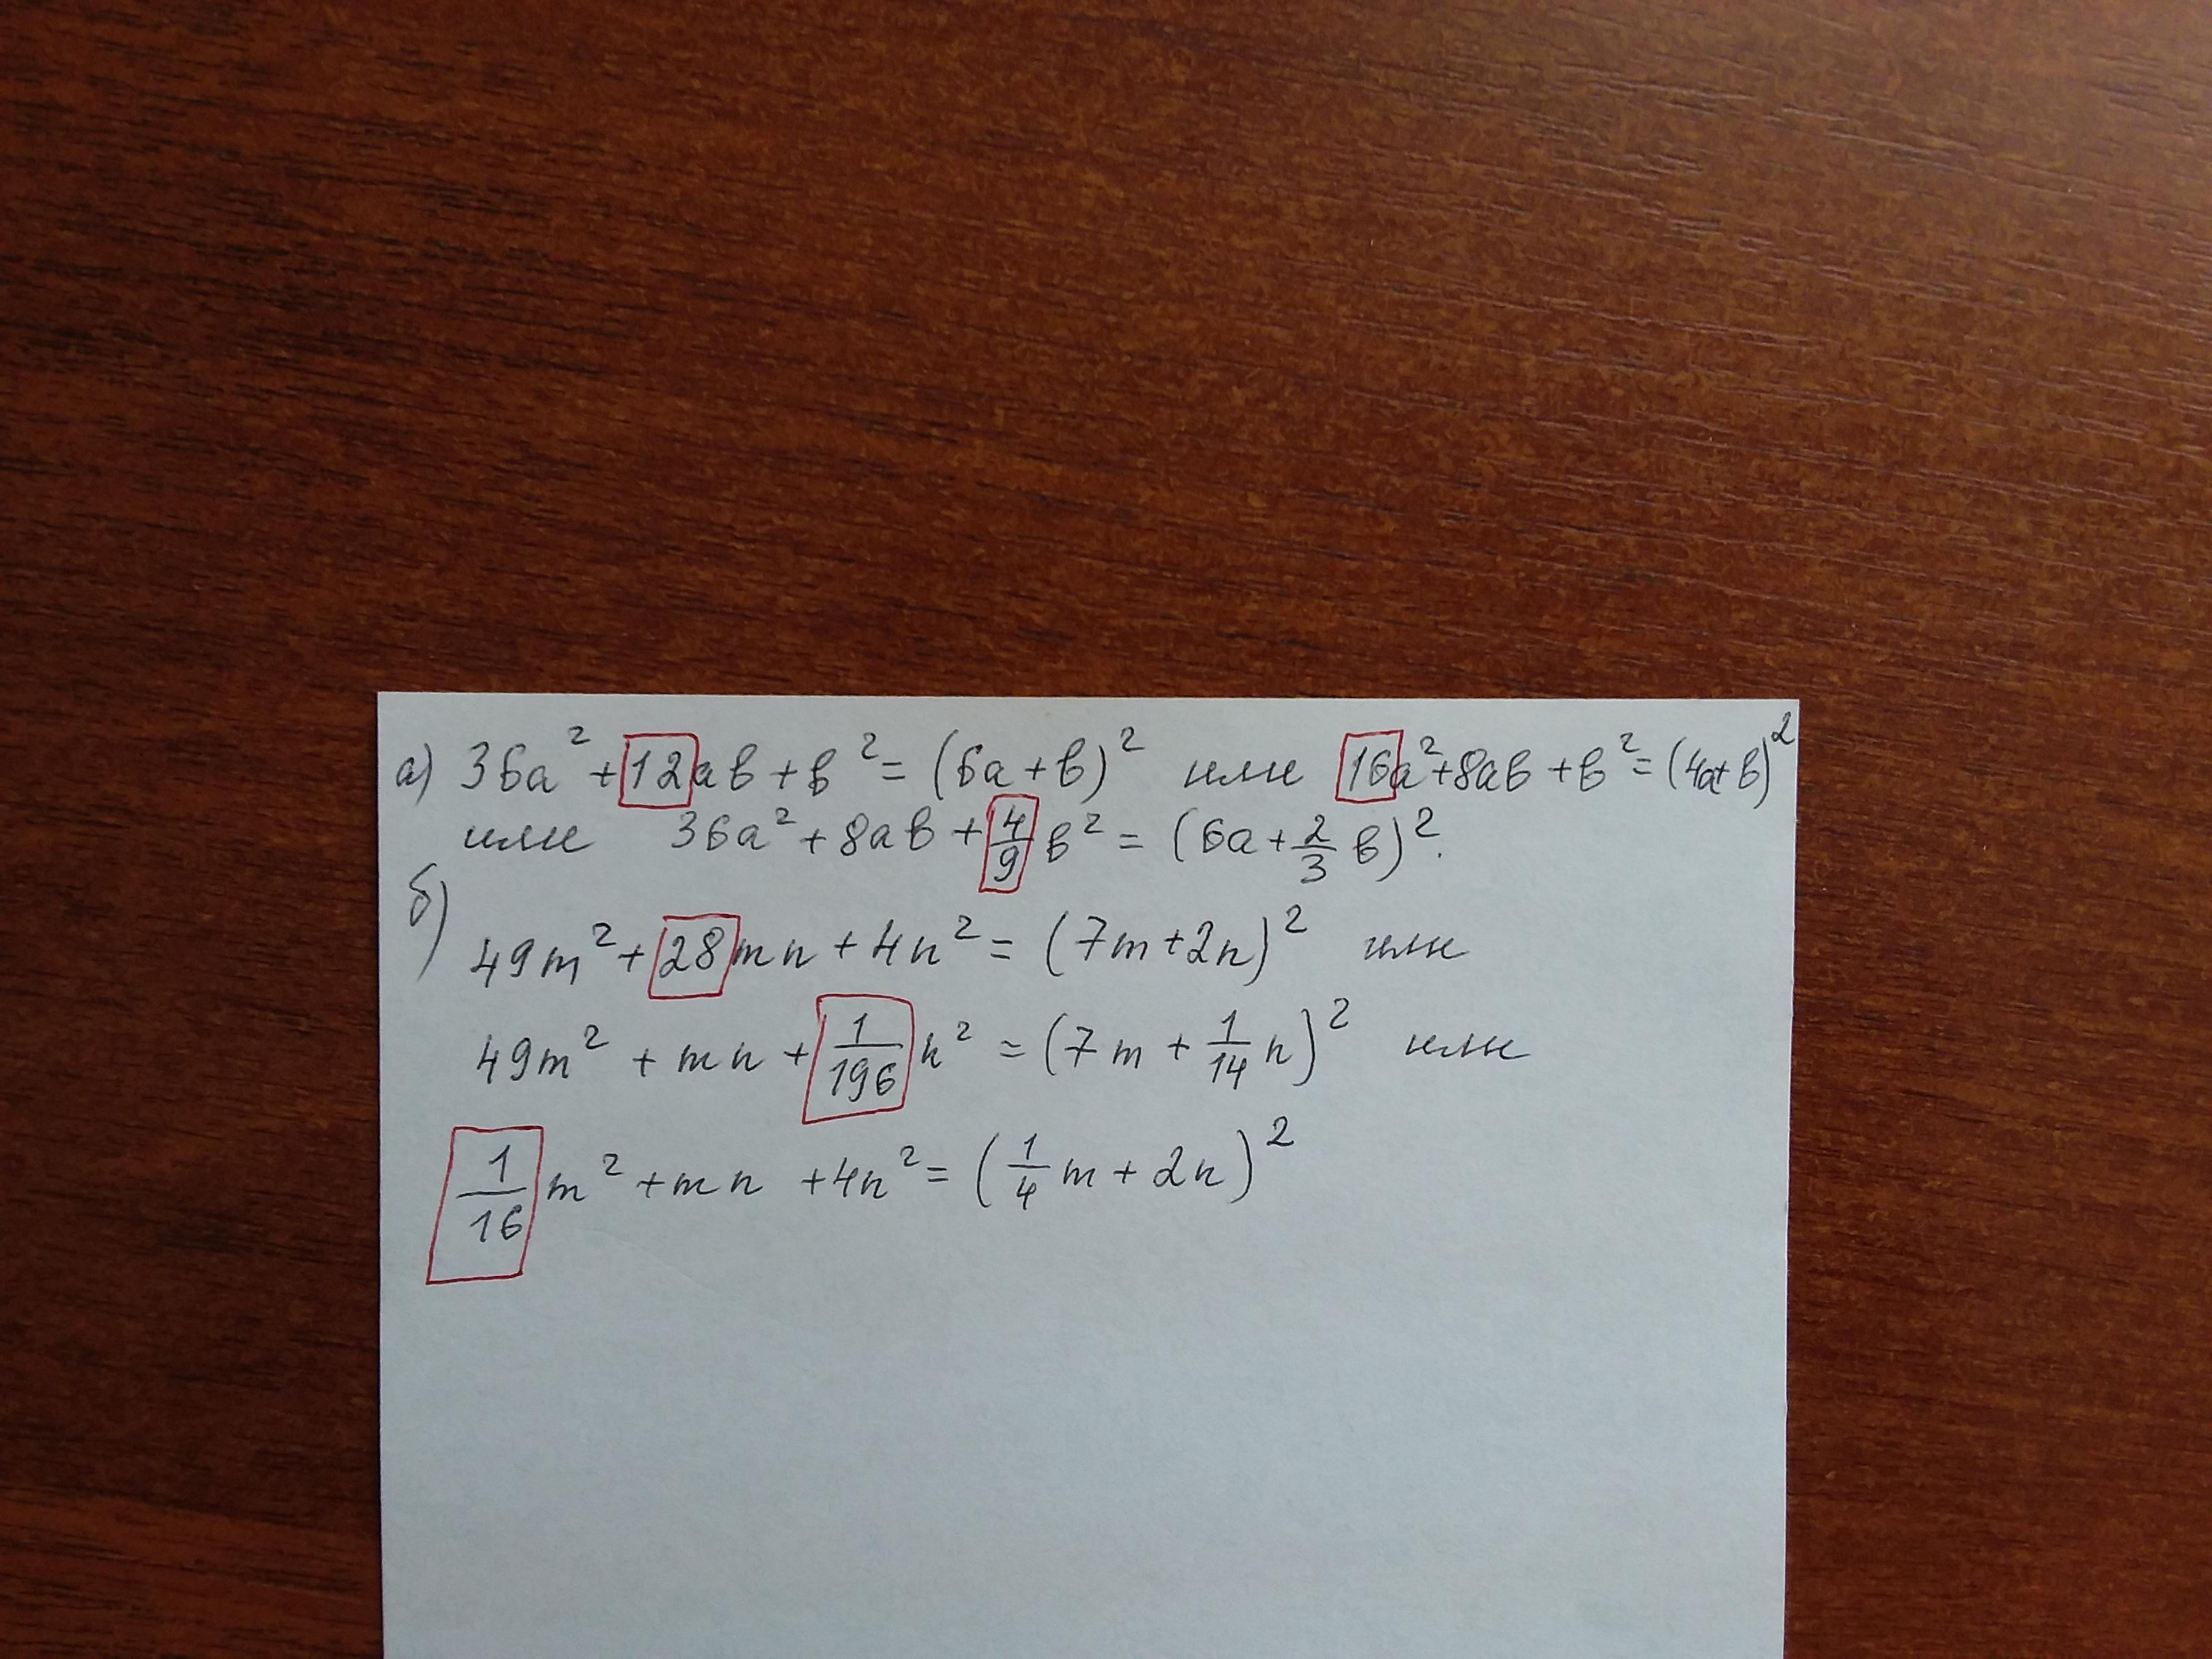 а) 36a² + 12ab + b² = (6a + b)² или 16a² + 8ab + b² = (4a + b)²
или 36a² + 8ab + 4/9 b² = (6a + 2/3 b)².
б)
49m² + 28mn + 4n² = (7m + 2n)² или
49m² + mn + 1/196 n² = (7m + 1/14 n)² или
1/16 m² + mn + 4n² = (1/4 m + 2n)²